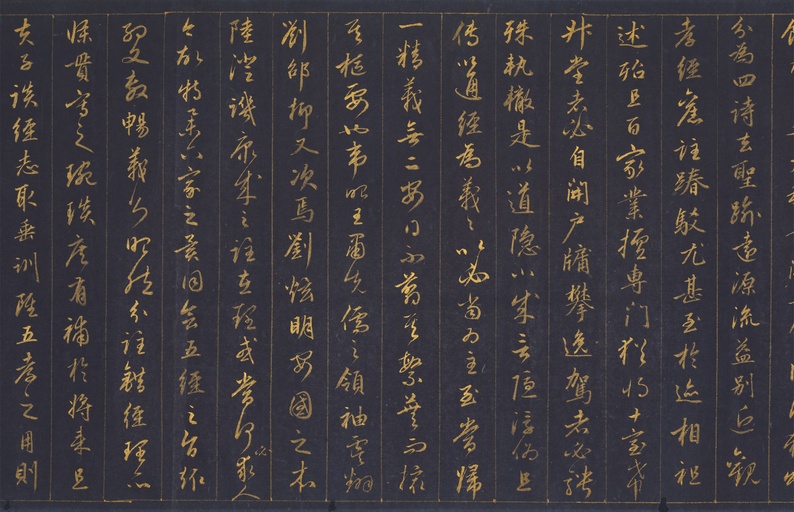 分為四詩去聖踰遠源流益別近觀
孝經舊註踳駮尤甚至於迹相祖
述殆且百家業擅專門猶將十室希
升堂者必自開戶牖攀逸駕者必騁
殊軌轍是以道隱小成言隱浮偽且
傳以通經為義〻以必當為主至當歸
一精義無二安得不翦其繁蕪而撮
其樞要也韋昭王肅先儒之領袖虞翻
劉邵抑又次焉劉炫明安國之本
陸澄譏康成之註在理或當何必求人
今故特舉六家之異同會五經之旨趣
約文敷暢義則昭然分註錯經理亦
條貫寫之琬琰庶有補於將來且
夫子談經志取垂訓雖五孝之用則